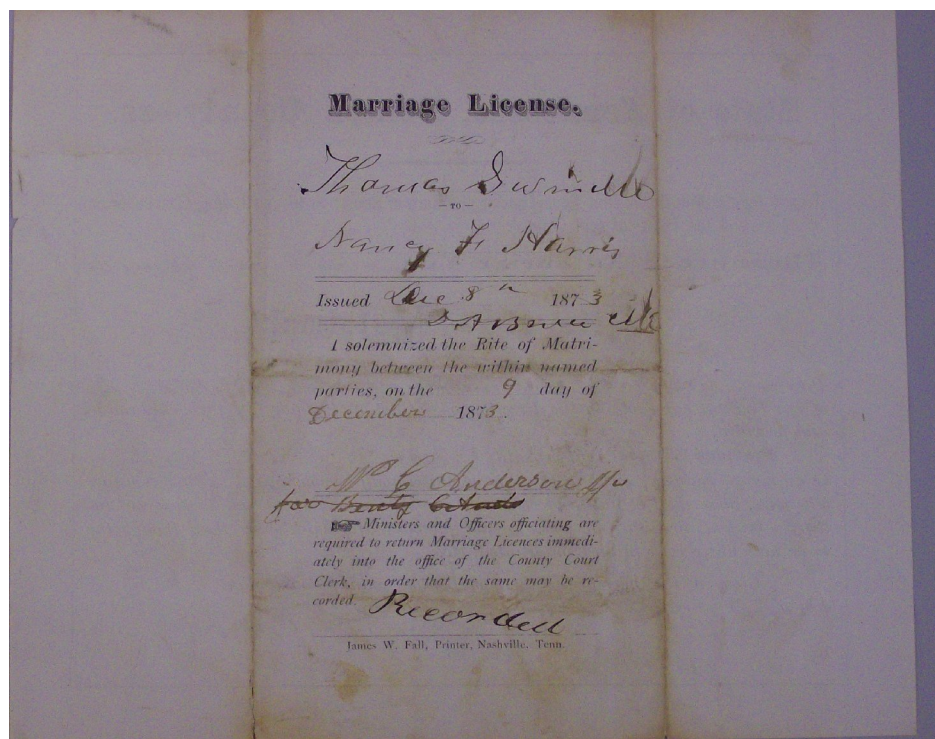 Marriage License.
Thomas
— TO —
Nancy F Harris
Issued Dec 8th 1873
D. A.
I solemnized the Rite of Matri-
mony between the within named
parties, on the 9 day of
December 1873.
W C Anderson
☞ Ministers and Officers officiating are
required to return Marriage Licences immedi-
ately into the office of the County Court
Clerk, in order that the same may be re-
corded. Recorded
James W. Fall, Printer, Nashville, Tenn.